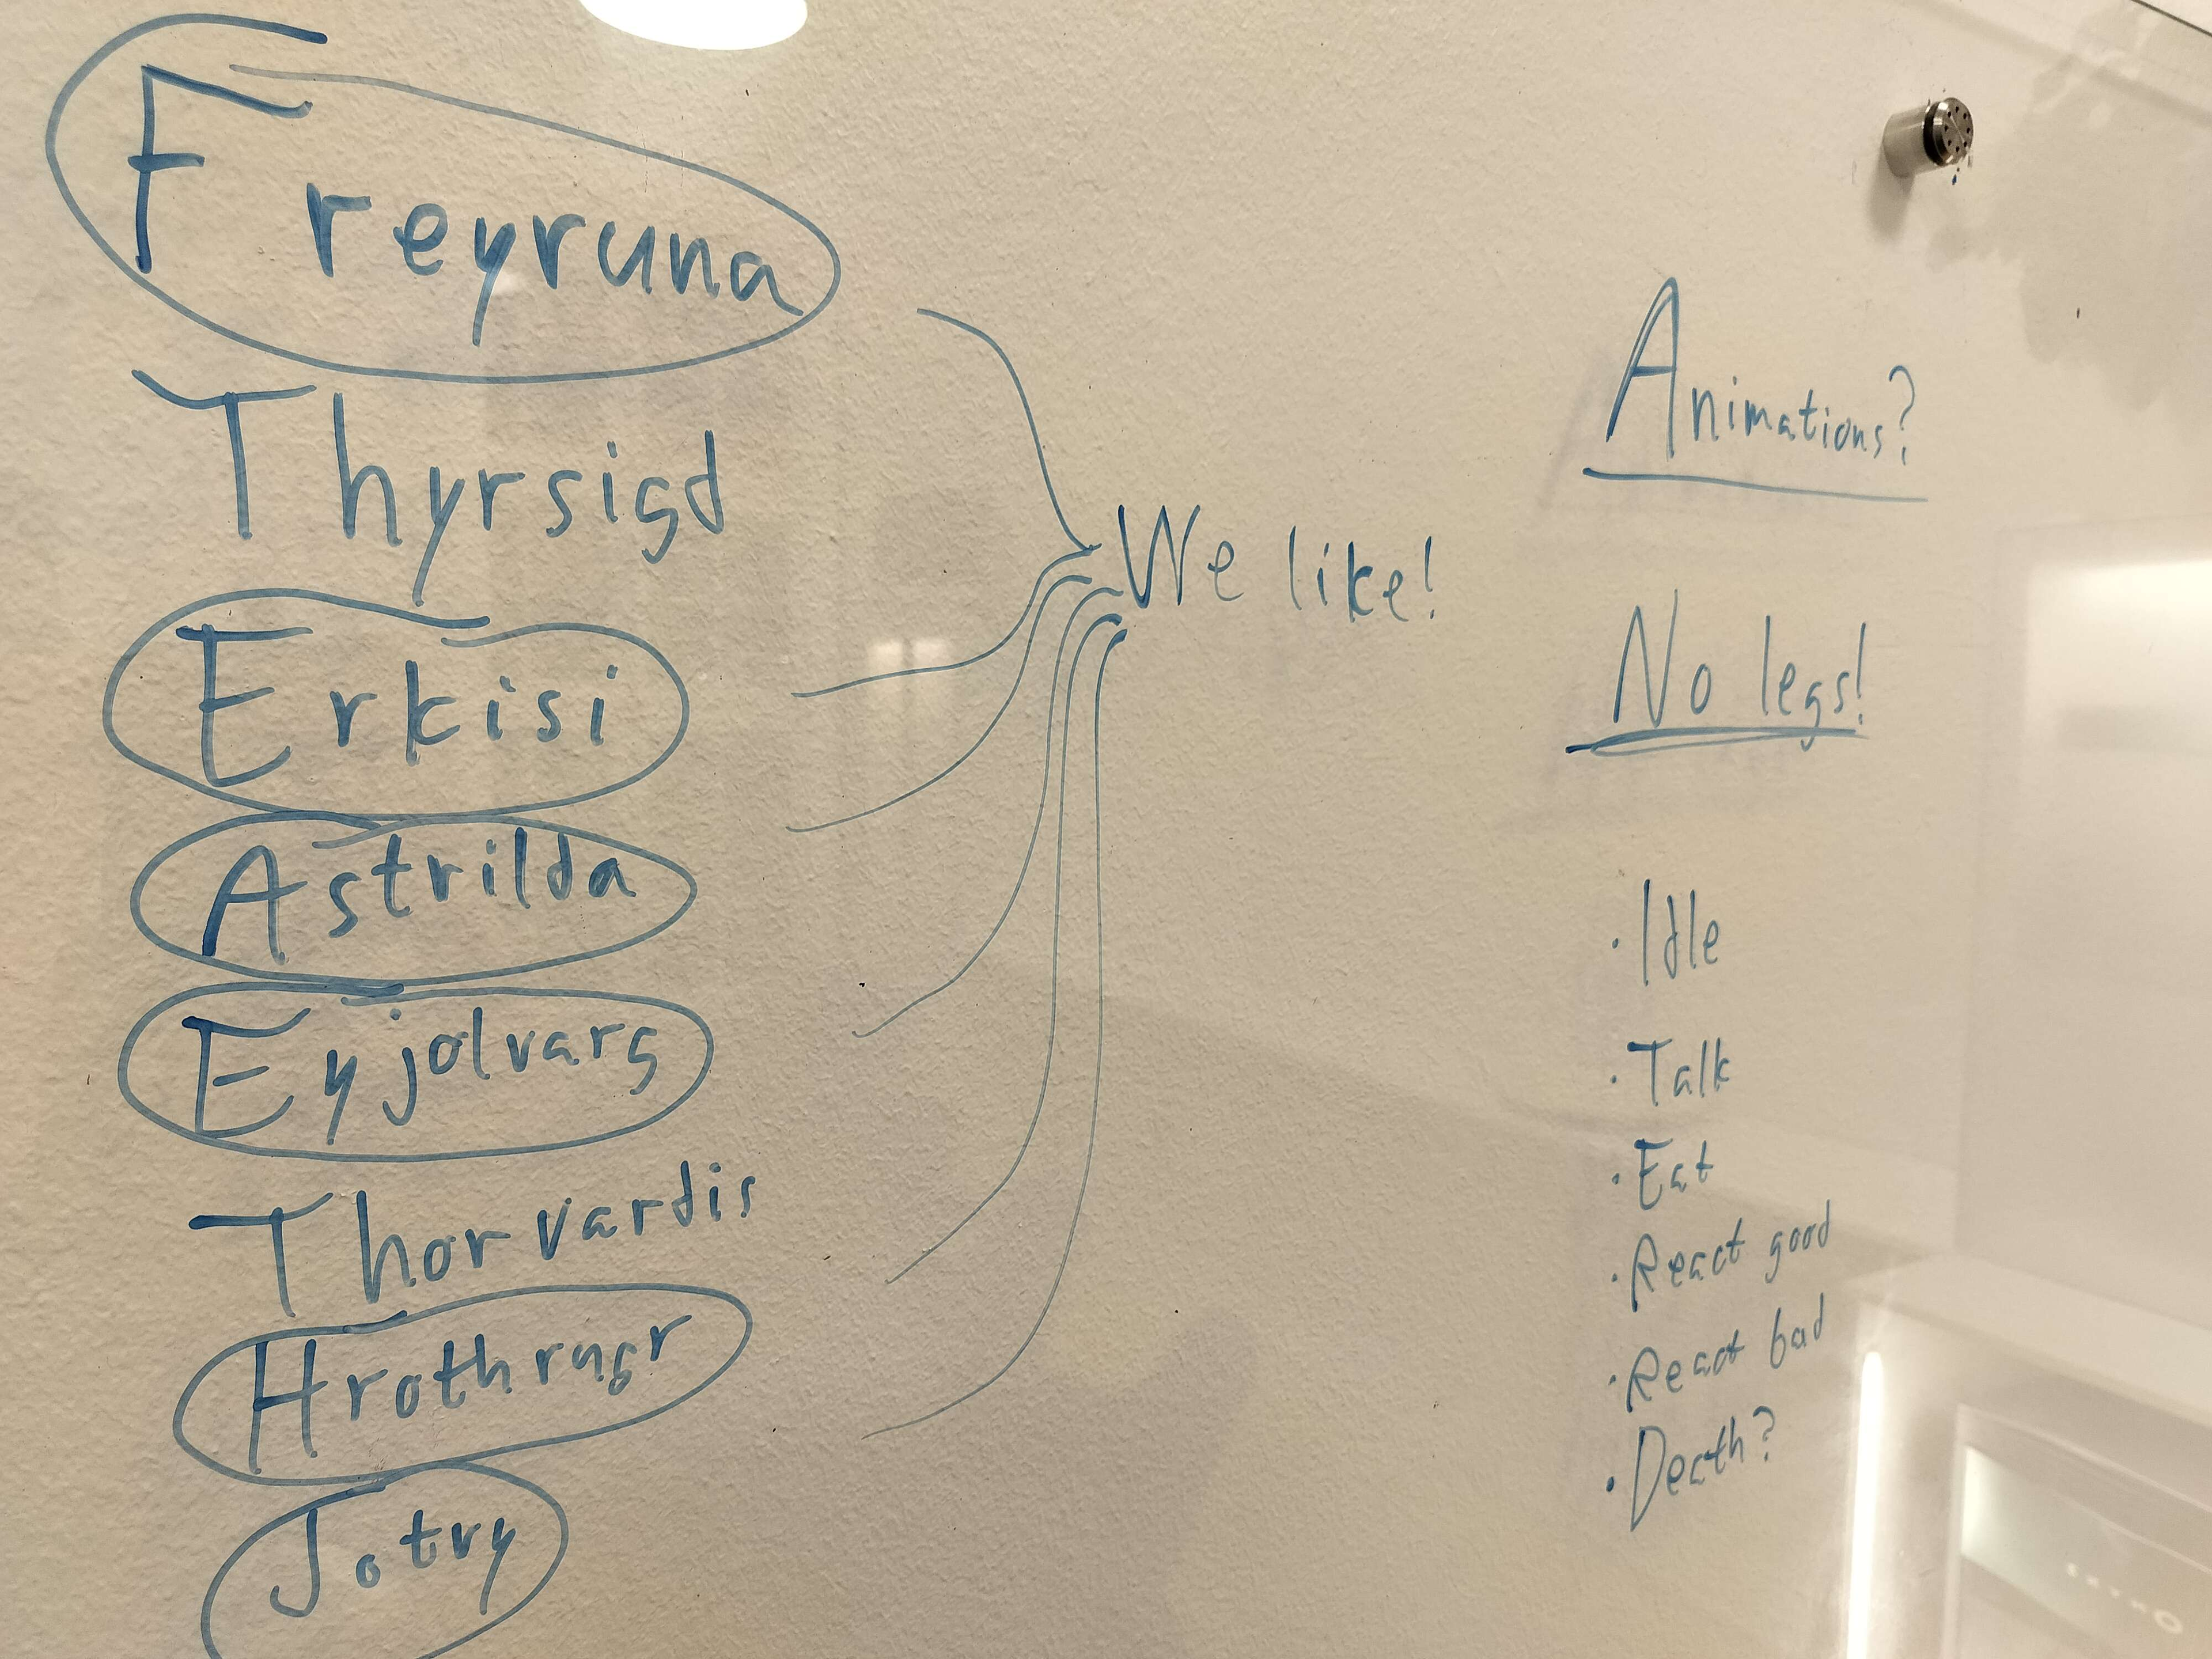 Freyruna
Thyrsigd
Erkisi
Astrilda
Eyjolvarg
Thorvardis
Hrothrugr
Jotry
We like!
Animations?
No legs!
· Idle
· Talk
· Eat
· React good
· React bad
· Death?